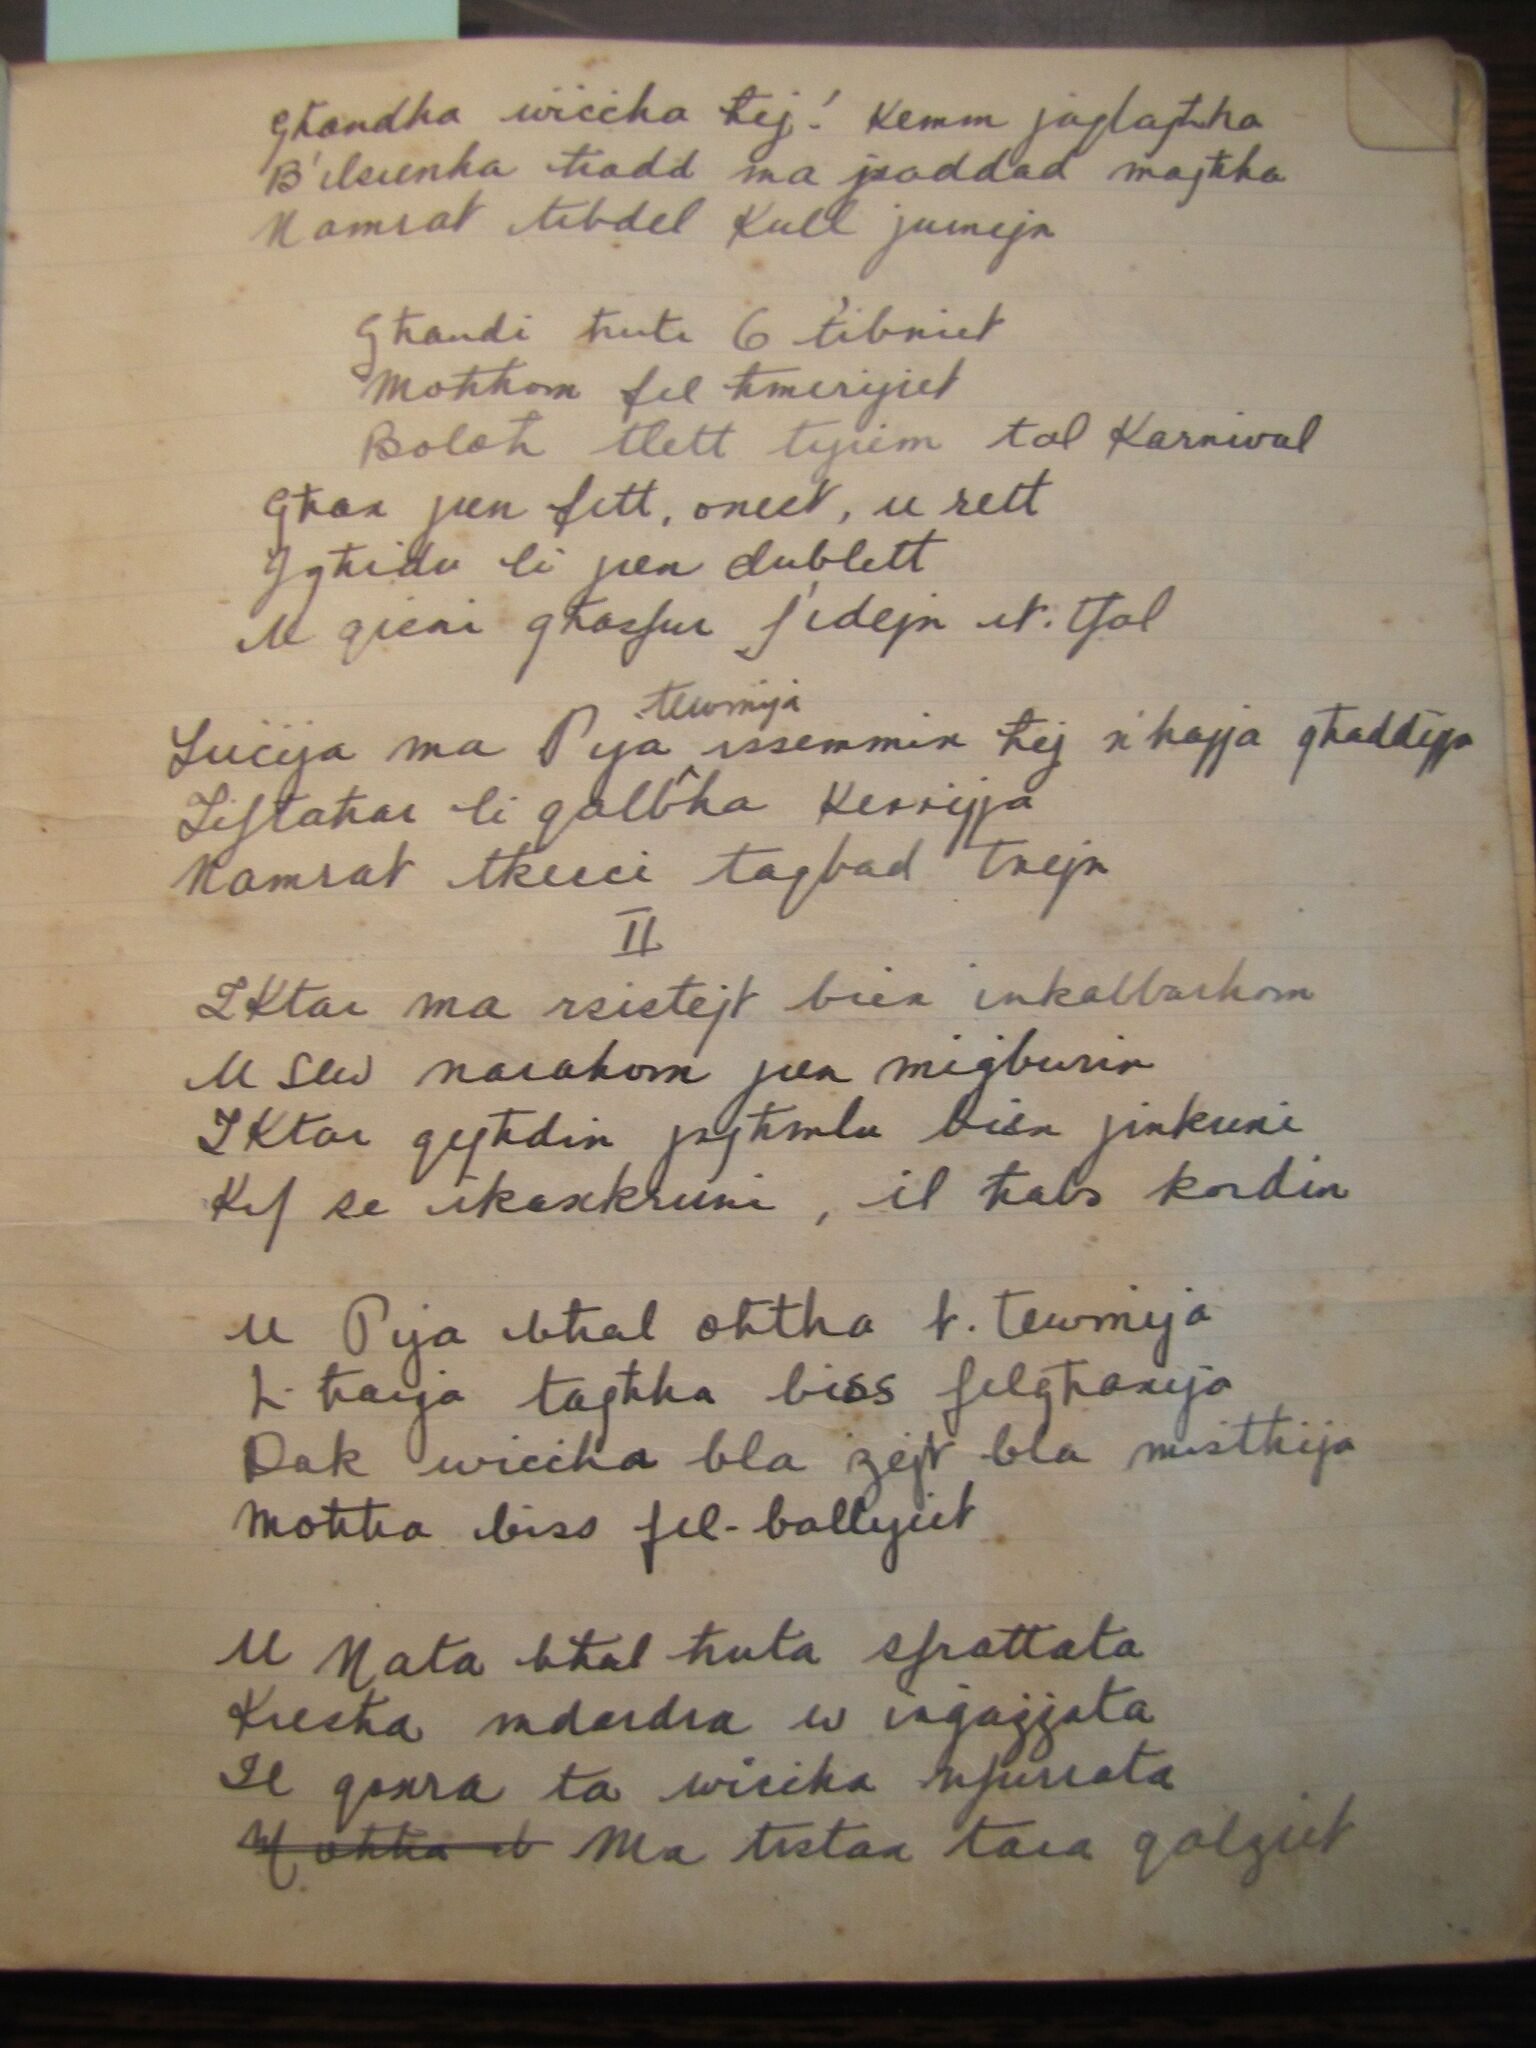 Għandha wiċċha ħej! Kemm jagħlagħha
B'ilsienha ħadd ma joddod magħha
Namrat tibdel Kull jumejn
Għandi ħuti 6 t'ibniet
Moħħom fil ħmerijiet
Boloħ tlett tijiem tal Karnival
Għax jien fitt, onest, u rett
Jgħidu li jien dublett
U qieni għasfur f'idejn it. tfal
Luċija ma Pija issemmix ħej n'hajja għaddijja
tewmija
Tiftaħar li qalbha Kennijja
Namrat tkeċċi taqbad tnejn
II
Iktar ma rsistejt biex inkabbarhom
U sew narahom jien miġburin
Iktar qegħdin jagħmlu biex jinkuni
Kif se ikaxkruni, il ħabs kordin
U Pija bħal oħtha t. tewmija
L-ħarja tagħha biss filgħaxija
Dak wiċċha bla żejt bla mistħija
Moħħa biss fil-ballijiet
U Nata bħal ħuta sfrattata
Kiesħa mdardra w inġazzata
Il qoxra ta wiċċha nfurrata
Moħħa it Ma tistax tara qalziet